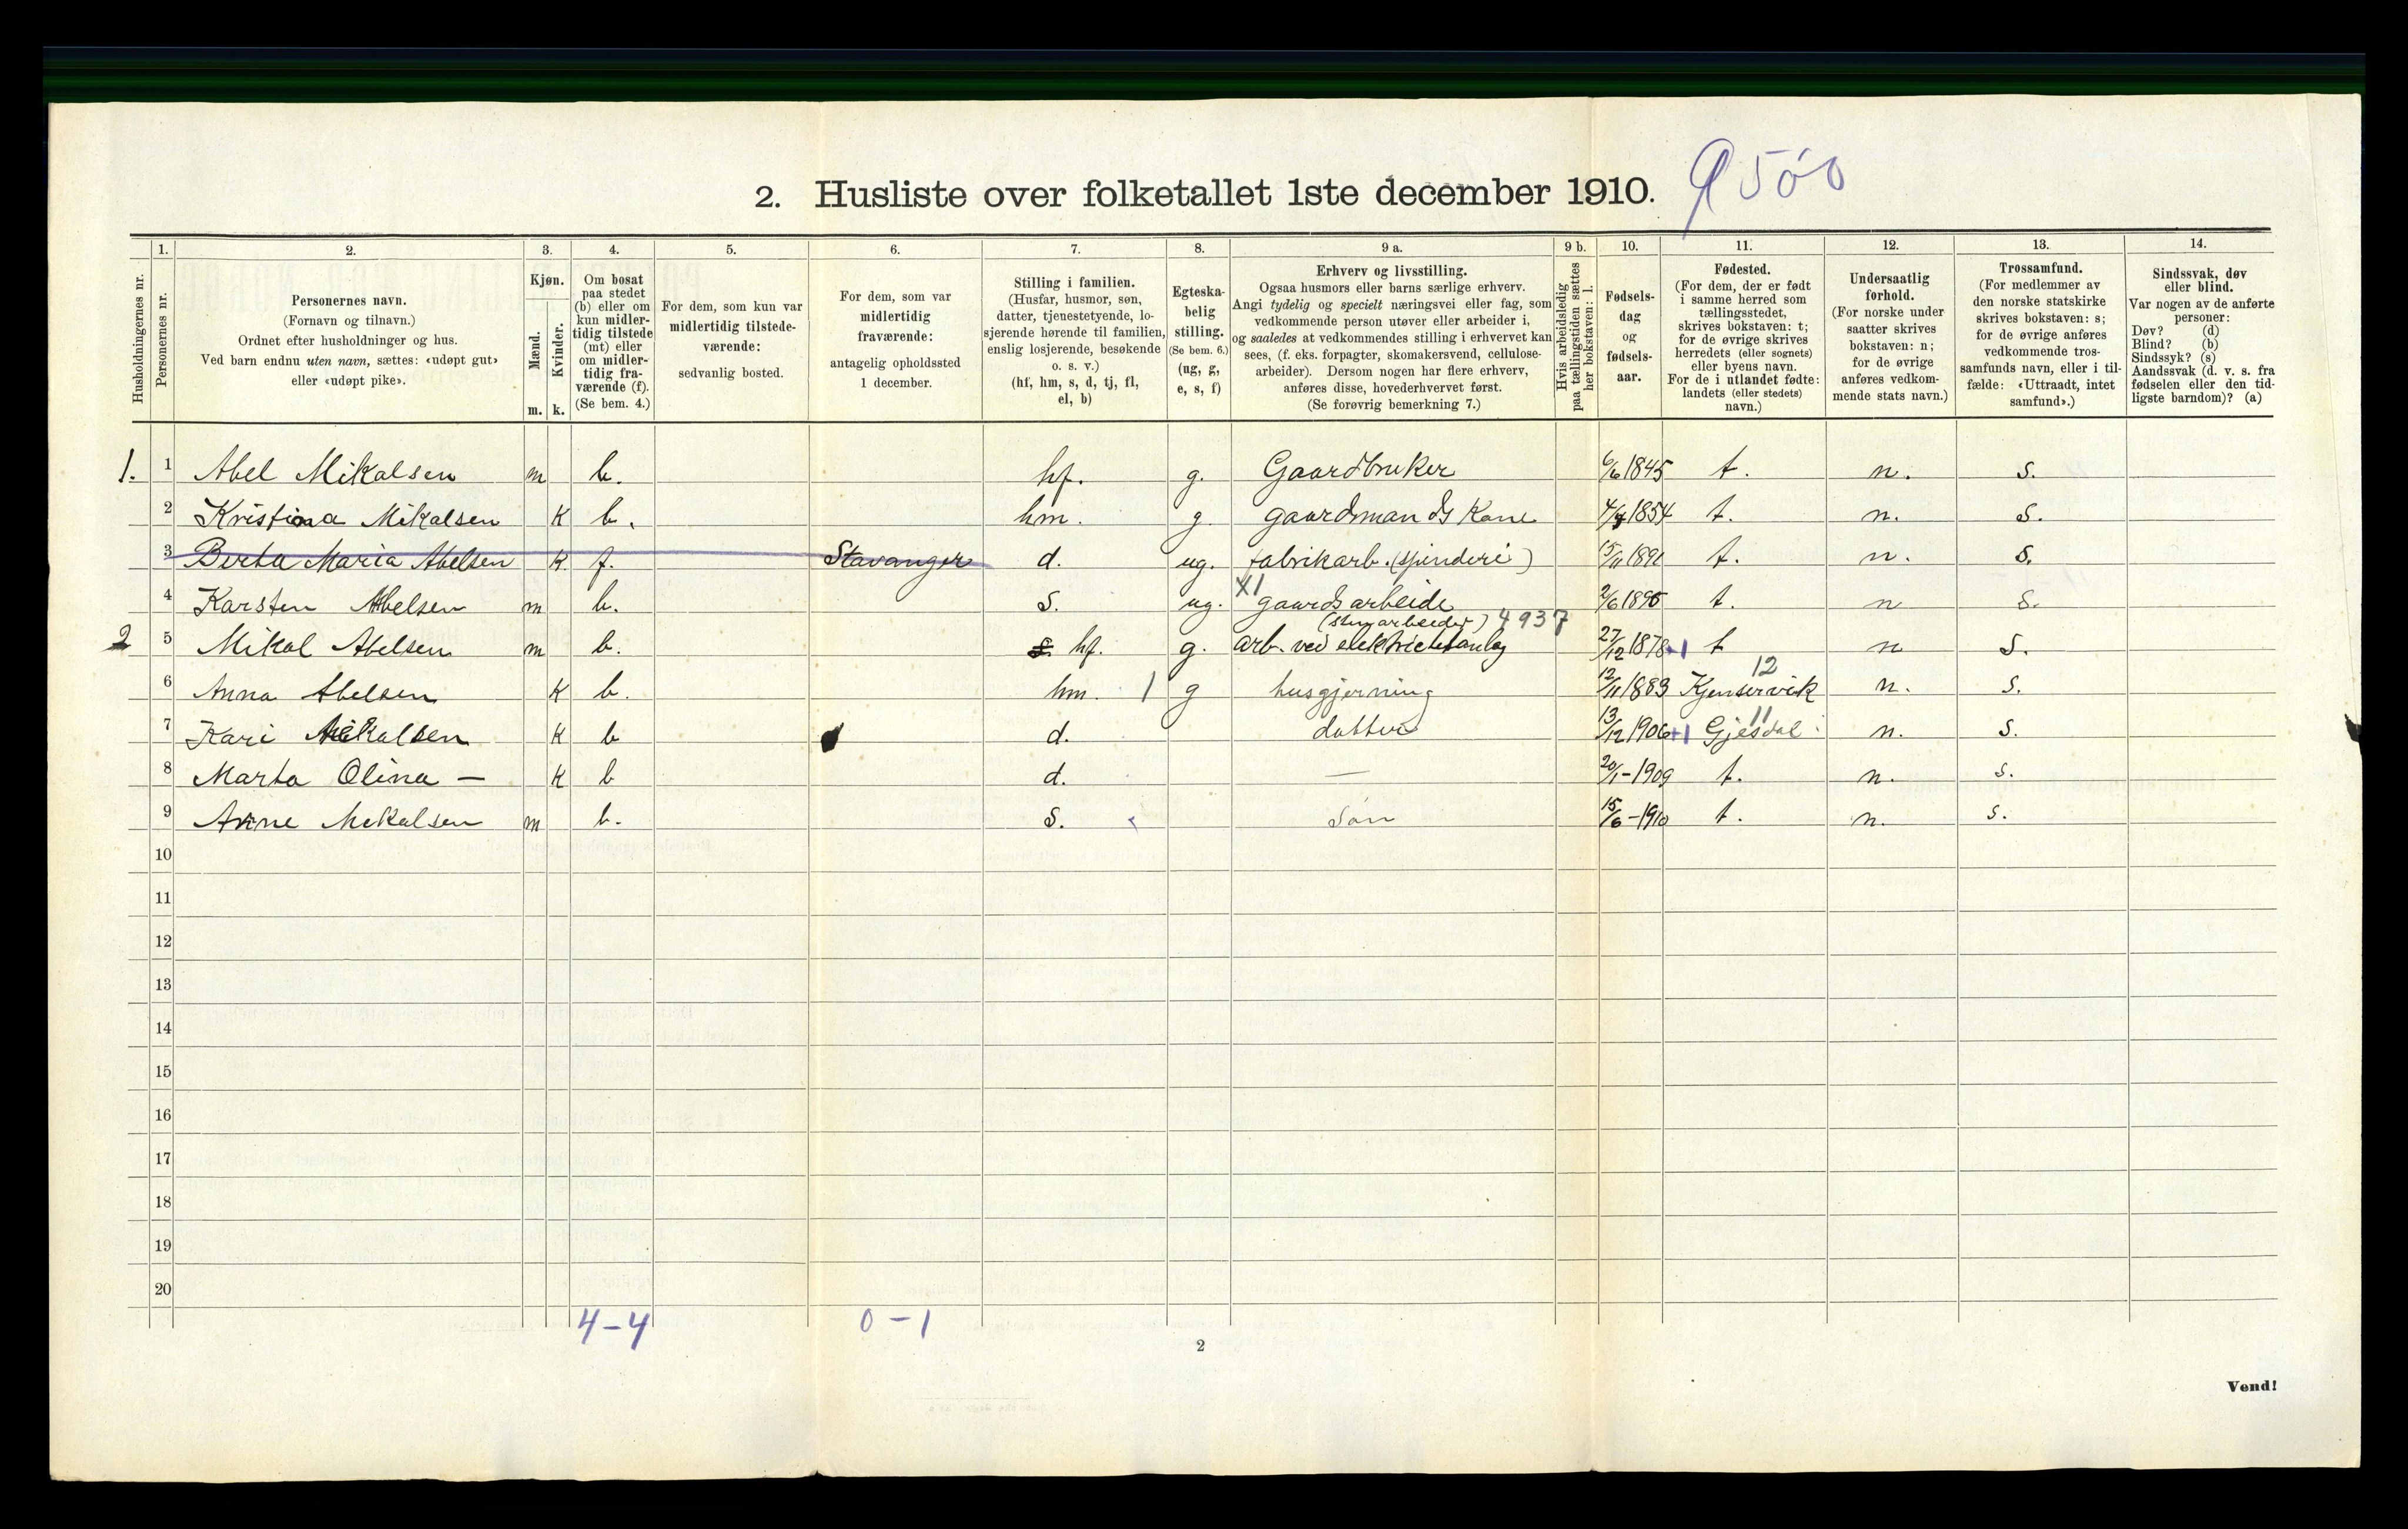 2. Husliste over folketallet 1ste december 1910.
1. 2. 3. 4. 5. 6. 7. 8. 9 a. 9 b. 10. 11. 12. 13. 14.
Husholdningernes nr.
Personernes nr.
Personernes navn.
(Fornavn og tilnavn.)
Ordnet efter husholdninger og hus.
Ved barn endnu uten navn, sættes: «udøpt gut»
eller «udøpt pike».
Kjøn.
Mænd.
Kvinder.
m. k.
Om bosat
paa stedet
(b) eller om
kun midler-
tidig tilstede
(mt) eller
om midler-
tidig fra-
værende (f).
(Se bem. 4.)
For dem, som kun var
midlertidig tilstede-
værende:
sedvanlig bosted.
For dem, som var
midlertidig
fraværende:
antagelig opholdssted
1 december.
Stilling i familien.
(Husfar, husmor, søn,
datter, tjenestetyende, lo-
sjerende hørende til familien,
enslig losjerende, besøkende
o. s. v.)
(hf, hm, s, d, tj, fl,
el, b)
Egteska-
belig
stilling.
(Se bem. 6.)
(ug, g,
e, s, f)
Erhverv og livsstilling.
Ogsaa husmors eller barns særlige erhverv.
Angi tydelig og specielt næringsvei eller fag, som
vedkommende person utøver eller arbeider i,
og saaledes at vedkommendes stilling i erhvervet kan
sees, (f. eks. forpagter, skomakersvend, cellulose-
arbeider). Dersom nogen har flere erhverv,
anføres disse, hovederhvervet først.
(Se forøvrig bemerkning 7.)
Hvis arbeidsledig
paa tællingstiden sættes
her bokstaven: l.
Fødsels-
dag
og
fødsels-
aar.
Fødested.
(For dem, der er født
i samme herred som
tællingsstedet,
skrives bokstaven: t;
for de øvrige skrives
herredets (eller sognets)
eller byens navn.
For de i utlandet fødte:
landets (eller stedets)
navn.)
Undersaatlig
forhold.
(For norske under
saatter skrives
bokstaven: n;
for de øvrige
anføres vedkom-
mende stats navn.)
Trossamfund.
(For medlemmer av
den norske statskirke
skrives bokstaven: s;
for de øvrige anføres
vedkommende tros-
samfunds navn, eller i til-
fælde: «Uttraadt, intet
samfund».)
Sindssvak, døv
eller blind.
Var nogen av de anførte
personer:
Døv? (d)
Blind? (b)
Sindssyk? (s)
Aandssvak (d. v. s. fra
fødselen eller den tid-
ligste barndom)? (a)
1. 1 Abel Mikalsen m b. hf. g. Gaardbruker 6/6 1845 t. n. s.
2 Kristina Mikalsen K b. hm. g. gaardmands Kone 1854 t. n. s.
3 Berta Maria Abelsen K. f. Stavanger d. ug. fabrikarb. (spinderi) 15/11 1891 t. n. s.
4 Karsten Abelsen m b. s. ug. XI gaardsarbeide 2/6 1895 t. n s.
4937
2 5 Mikal Abelsen m b. hf. g. arb. ved elektricitetsanlæg 27/12 1878 +1 t n s.
6 Anna Abelsen K b. hm. 1 g husgjerning 12/11 1883 12 n. s.
7 Kari Mikalsen K b d. datter 13/12 1906 +1 11 Gjesdal n. s.
8 Marta Olina — K b d. — 20/1-1909 t. n. s.
9 Arne Mikalsen m b. s. Søn 15/6-1910 t. n. s.
10
11
12
13
14
15
16
17
18
19
20
4-4 0-1
2
Vend!